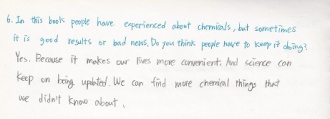 6. In this book people have experienced about chemicals, but sometimes
it is good results or bad news. Do you think people have to keep it doing?
Yes. Because it makes our lives more convenient. And science can
keep on being updated. We can find more chemical things that
we didn't know about.